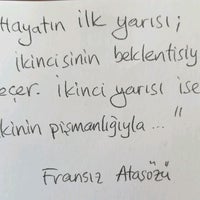 Hayatın ilk yarısı;
ikincisinin beklentisiy
eçer. ikinci yarısı ise
kinin pişmanlığıyla ..."
Fransız Atasözü